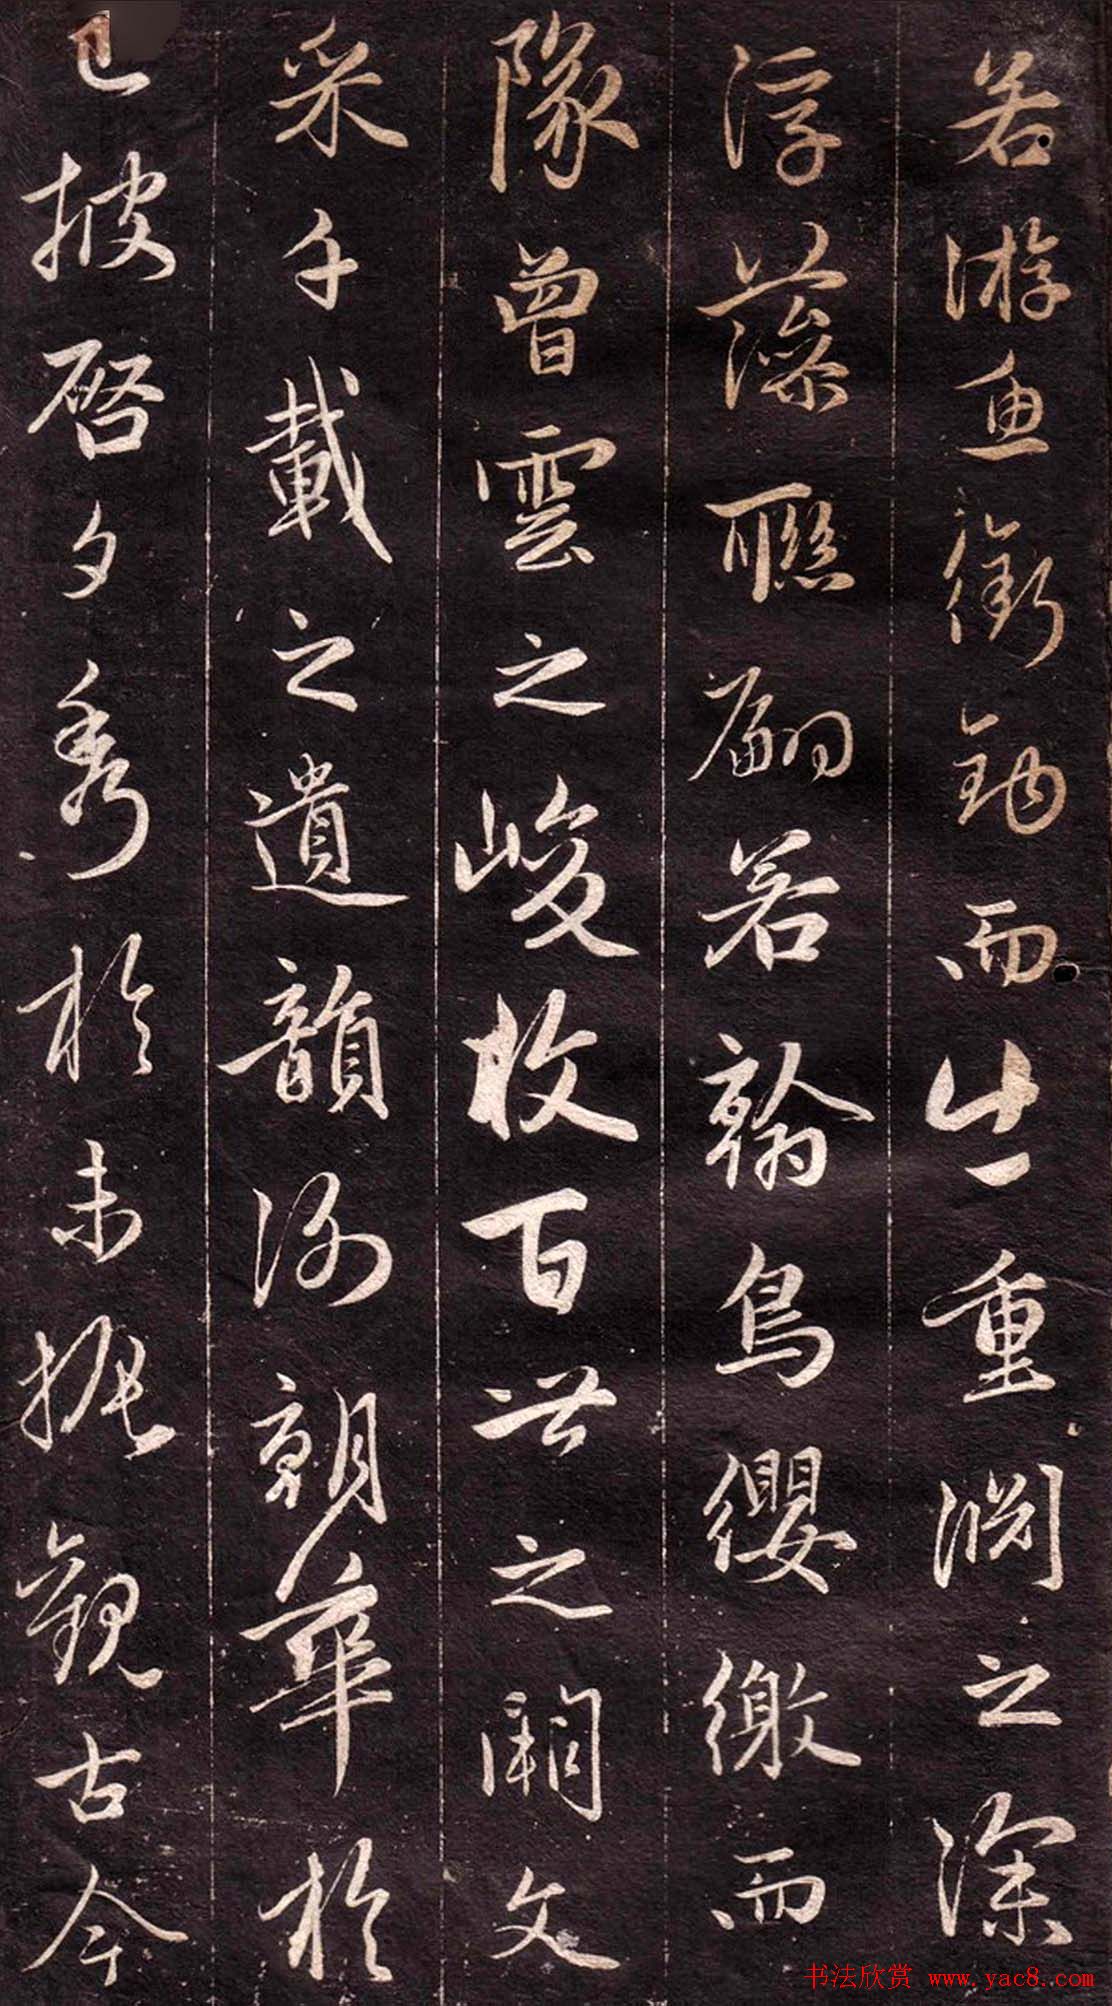 若游魚銜鉤而出重淵之深
浮藻聯翩若翰鳥纓繳而
隊曾雲之峻收百世之闕文
采千載之遺韻謝朝華於
已披啓夕秀於未振觀古今
书法欣赏 www.yac8.com